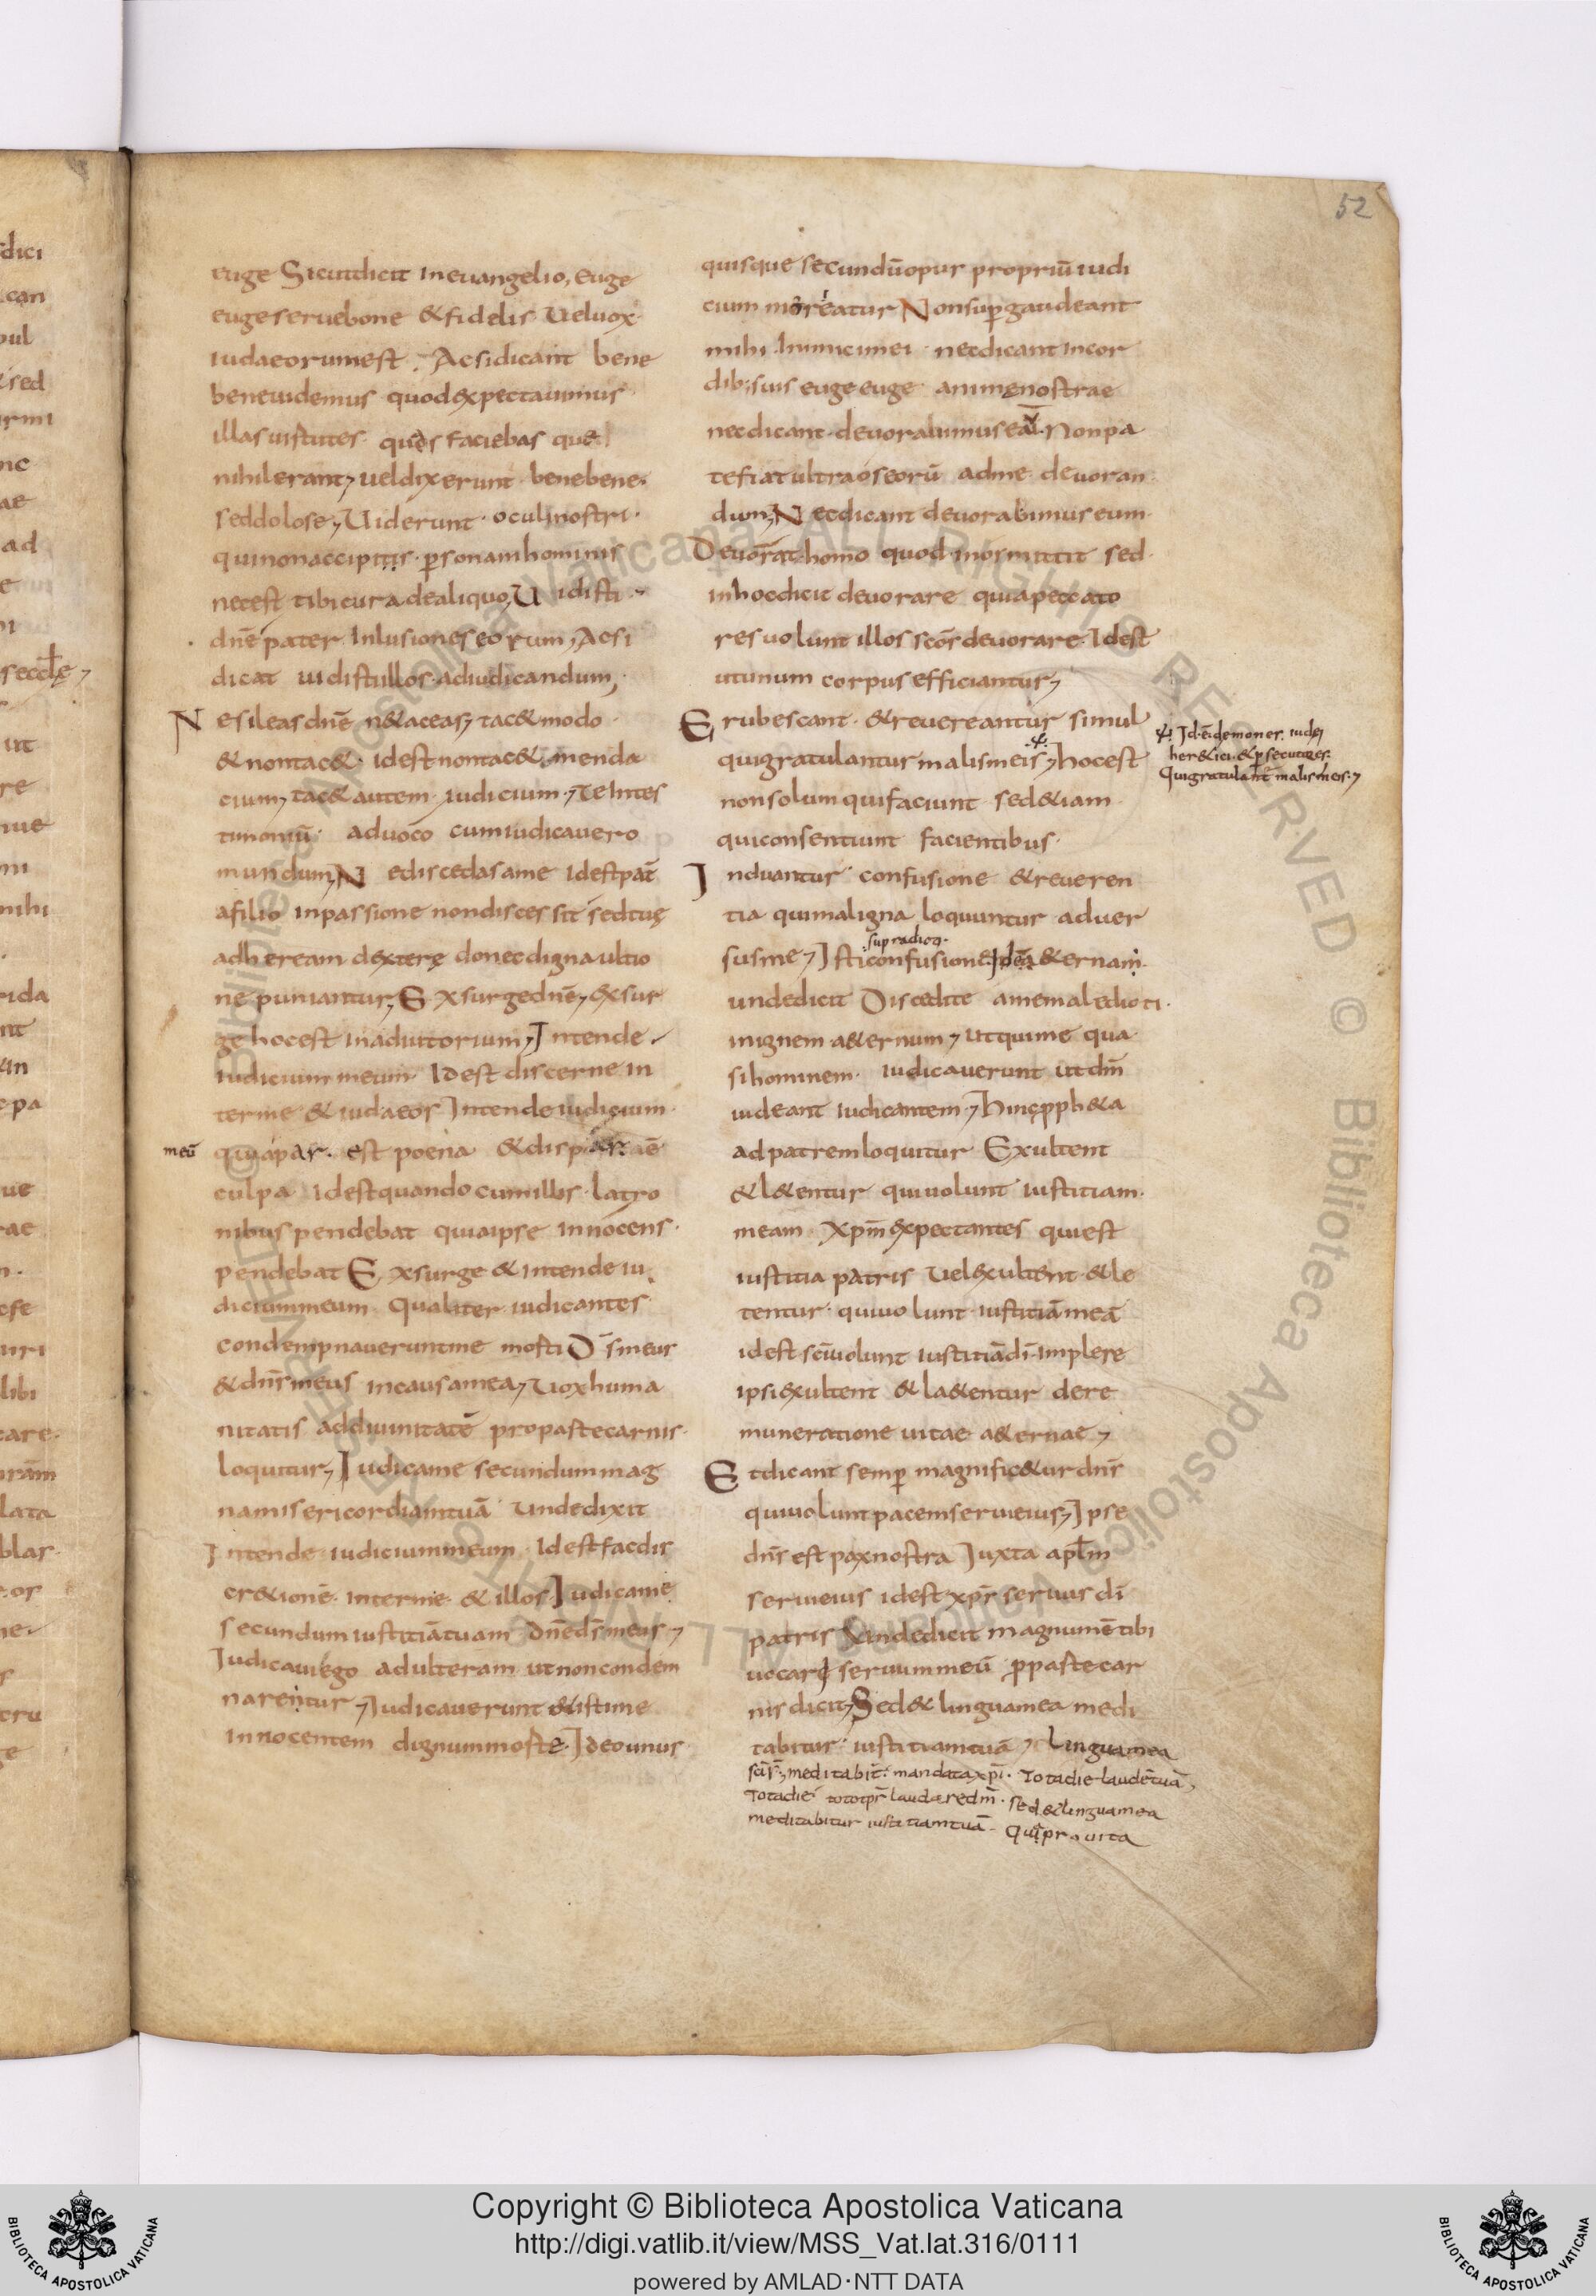 52
euge Sicut dicit in euangelio, euge
euge serue bone & fidelis Vel uox
iudaeorum est. Ac si dicant bene
bene uidemus quod expectauimus
illas uirtutes quas faciebas que
nihil erant, uel dixerunt bene bene
sed dolose, Viderunt oculi nostri
qui non accipitis p̄sonam hominis
nec est tibi cura de aliquo, Vidisti
dn̄e pater Inlusiones eorum, Ac si
dicat uidisti illos ad iudicandum,
Ne sileas dn̄e n& aceas, tac& modo
& non tac& id est non tac& menda
cium, tac& autem iudicium,
timoniū aduoco cum iudicauero
mundum, Ne discedas a me Id est pat̄
a filio in passione non discessit sed tuę
adheream dexterę donec digna ultio
ne puniantur, Exsurge dn̄e, exsur
ge hoc est in adiutorium, Intende
iudicium meum Id est discerne in
ter me & iudaeos Intende iudicium
meū
quia par est poena & dispar
culpa id est quando cum illis latro
nibus pendebat quia ipse innocens
pendebat Exsurge & intende iu
dicium meum Qualiter iudicantes
condempnauerunt me morti Ds̄ meus
& dn̄s meus in causa mea, Vox huma
nitatis ad diuinitatē pro parte carnis
loquitur, Iudica me secundum mag
nam isericordiam tuā Vnde dixit
Intende iudicium meum Id est fac dis
cr&ionē inter me & illos Iudica me
secundum iustitiā tuam dn̄e ds̄ meus,
Iudicaui ego adulteram ut non condem
narentur, Iudicauerunt & isti me
innocentem dignum morte Ideo unus
quisque secundū opus propriū iudi
cium mereatur Non sup̄gaudeant
mihi Inimici mei nec dicant in cor
dib; suis euge euge anime nostrae
nec dicant deuorabimus eū Non pa
tefiat ultra os eorū ad me deuoran
dum, Nec dicant deuorabimus eum
Deuorat homo quod in os mittit sed
in hoc dicit deuorare quia peccato
res uolunt illos sc̄os deuorare Id est
ut unum corpus efficiantur,
Erubescant & reuereantur simul
qui gratulantur malis meis, hoc est
Id ē demones iudei
her&ici & p̄secutores
Qui gratulant̄ malis meis,
non solum qui faciunt sed & iam
qui consentiunt facientibus
Induantur confusione & reueren
tia qui maligna loquuntur aduer
sus me, Isti confusione &ernam
unde dicit Discedite a me maledicti
in ignem a&ernum, ut qui me qua
si hominem iudicauerunt ut dn̄m
uideant iudicantem, Hinc pph&a
ad patrem loquitur Exultent
& l&entur qui uolunt iustitiam
meam xpm̄ expectantes qui est
iustitia patris Vel exultent & le
tentur qui uolunt iustitiā meā
id est sc̄i uolunt iustitiā dī implere
ipsi exultent & la&entur de re
muneratione uitae a&ernae,
Et dicant semp̄ magnific&ur dn̄s
qui uolunt pacem serui eius, Ipse
dn̄s est pax nostra Iuxta apl̄m
serui eius id est xps̄ seruus dī
patris Vnde dicit magnum ē tibi
uocari seruum meū p parte car
nis dicit, Sed & lingua mea medi
tabitur iustitiam tuā, Lingua mea
meditabit mandata xpī. Tota die laudē tuā,
Tota die laudare dm̄. sed & lingua mea
meditabitur iustitiam tuā. Qui pro uita
Copyright © Biblioteca Apostolica Vaticana
http://digi.vatlib.it/view/MSS_Vat.lat.316/0111
powered by AMLAD·NTT DATA
BIBLIOTECA APOSTOLICA VATICANA
BIBLIOTECA APOSTOLICA VATICANA